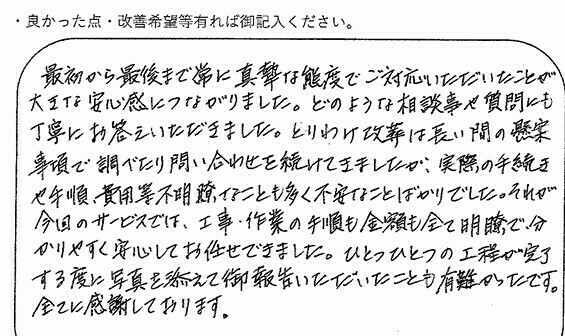 ・良かった点・改善希望等有れば御記入ください。
最初から最後まで常に真摯な態度でご対応いただいたことが
大きな安心感につながりました。どのような相談事や質問にも
丁寧にお答えいただきました。とりわけ改葬は長い間の懸案
事項で調べたり問い合わせを続けてきましたが、実際の手続き
や手順、費用等不明瞭なことも多く不安なことばかりでした。それが
今回のサービスでは、工事・作業の手順も金額も全て明瞭で、分
かりやすく安心してお任せできました。ひとつひとつの工程が完了
する度に写真を添えて御報告いただいたことも有難かったです。
全てに感謝しております。